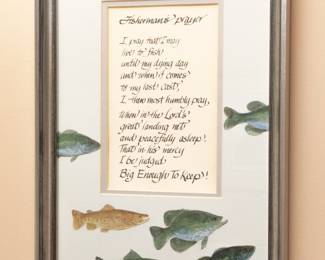 Fisherman's prayer
I pray that I may
live to fish
until my dying day
and when it comes
to my last cast,
I then most humbly pray,
When in the Lord's
great landing net
and peacefully asleep
That in his mercy
I be judged
Big Enough To Keep!